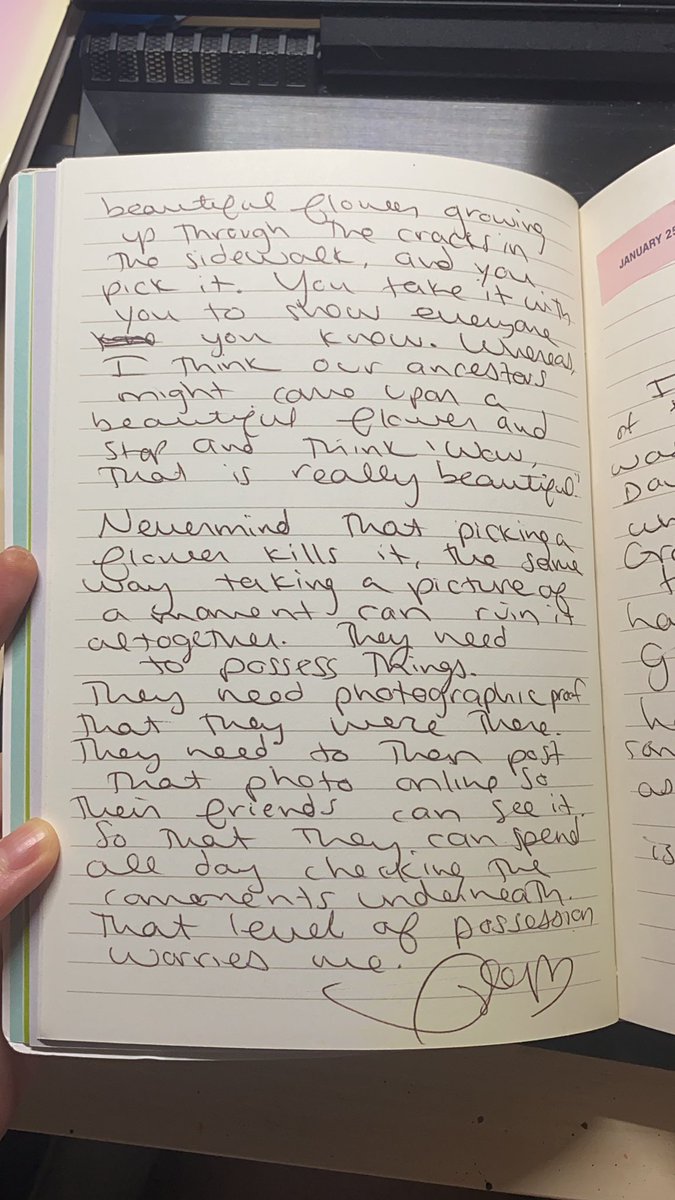 beautiful flower growing
up through the cracks in
the sidewalk, and you
pick it. You take it with
you to show everyone
you know. Whereas,
I think our ancestors
might come upon a
beautiful flower and
stop and think 'Wow,
that is really beautiful.'
Nevermind that picking a
flower kills it, the same
way taking a picture of
a moment can ruin it
altogether. They need
to possess things.
They need photographic proof
that they were there.
They need to then post
that photo online so
their friends can see it.
So that they can spend
all day checking the
comments underneath.
That level of possession
worries me.
JANUARY 25
I
of
wa
Da
wh
Gr
t
ha
g
h
son
as
is